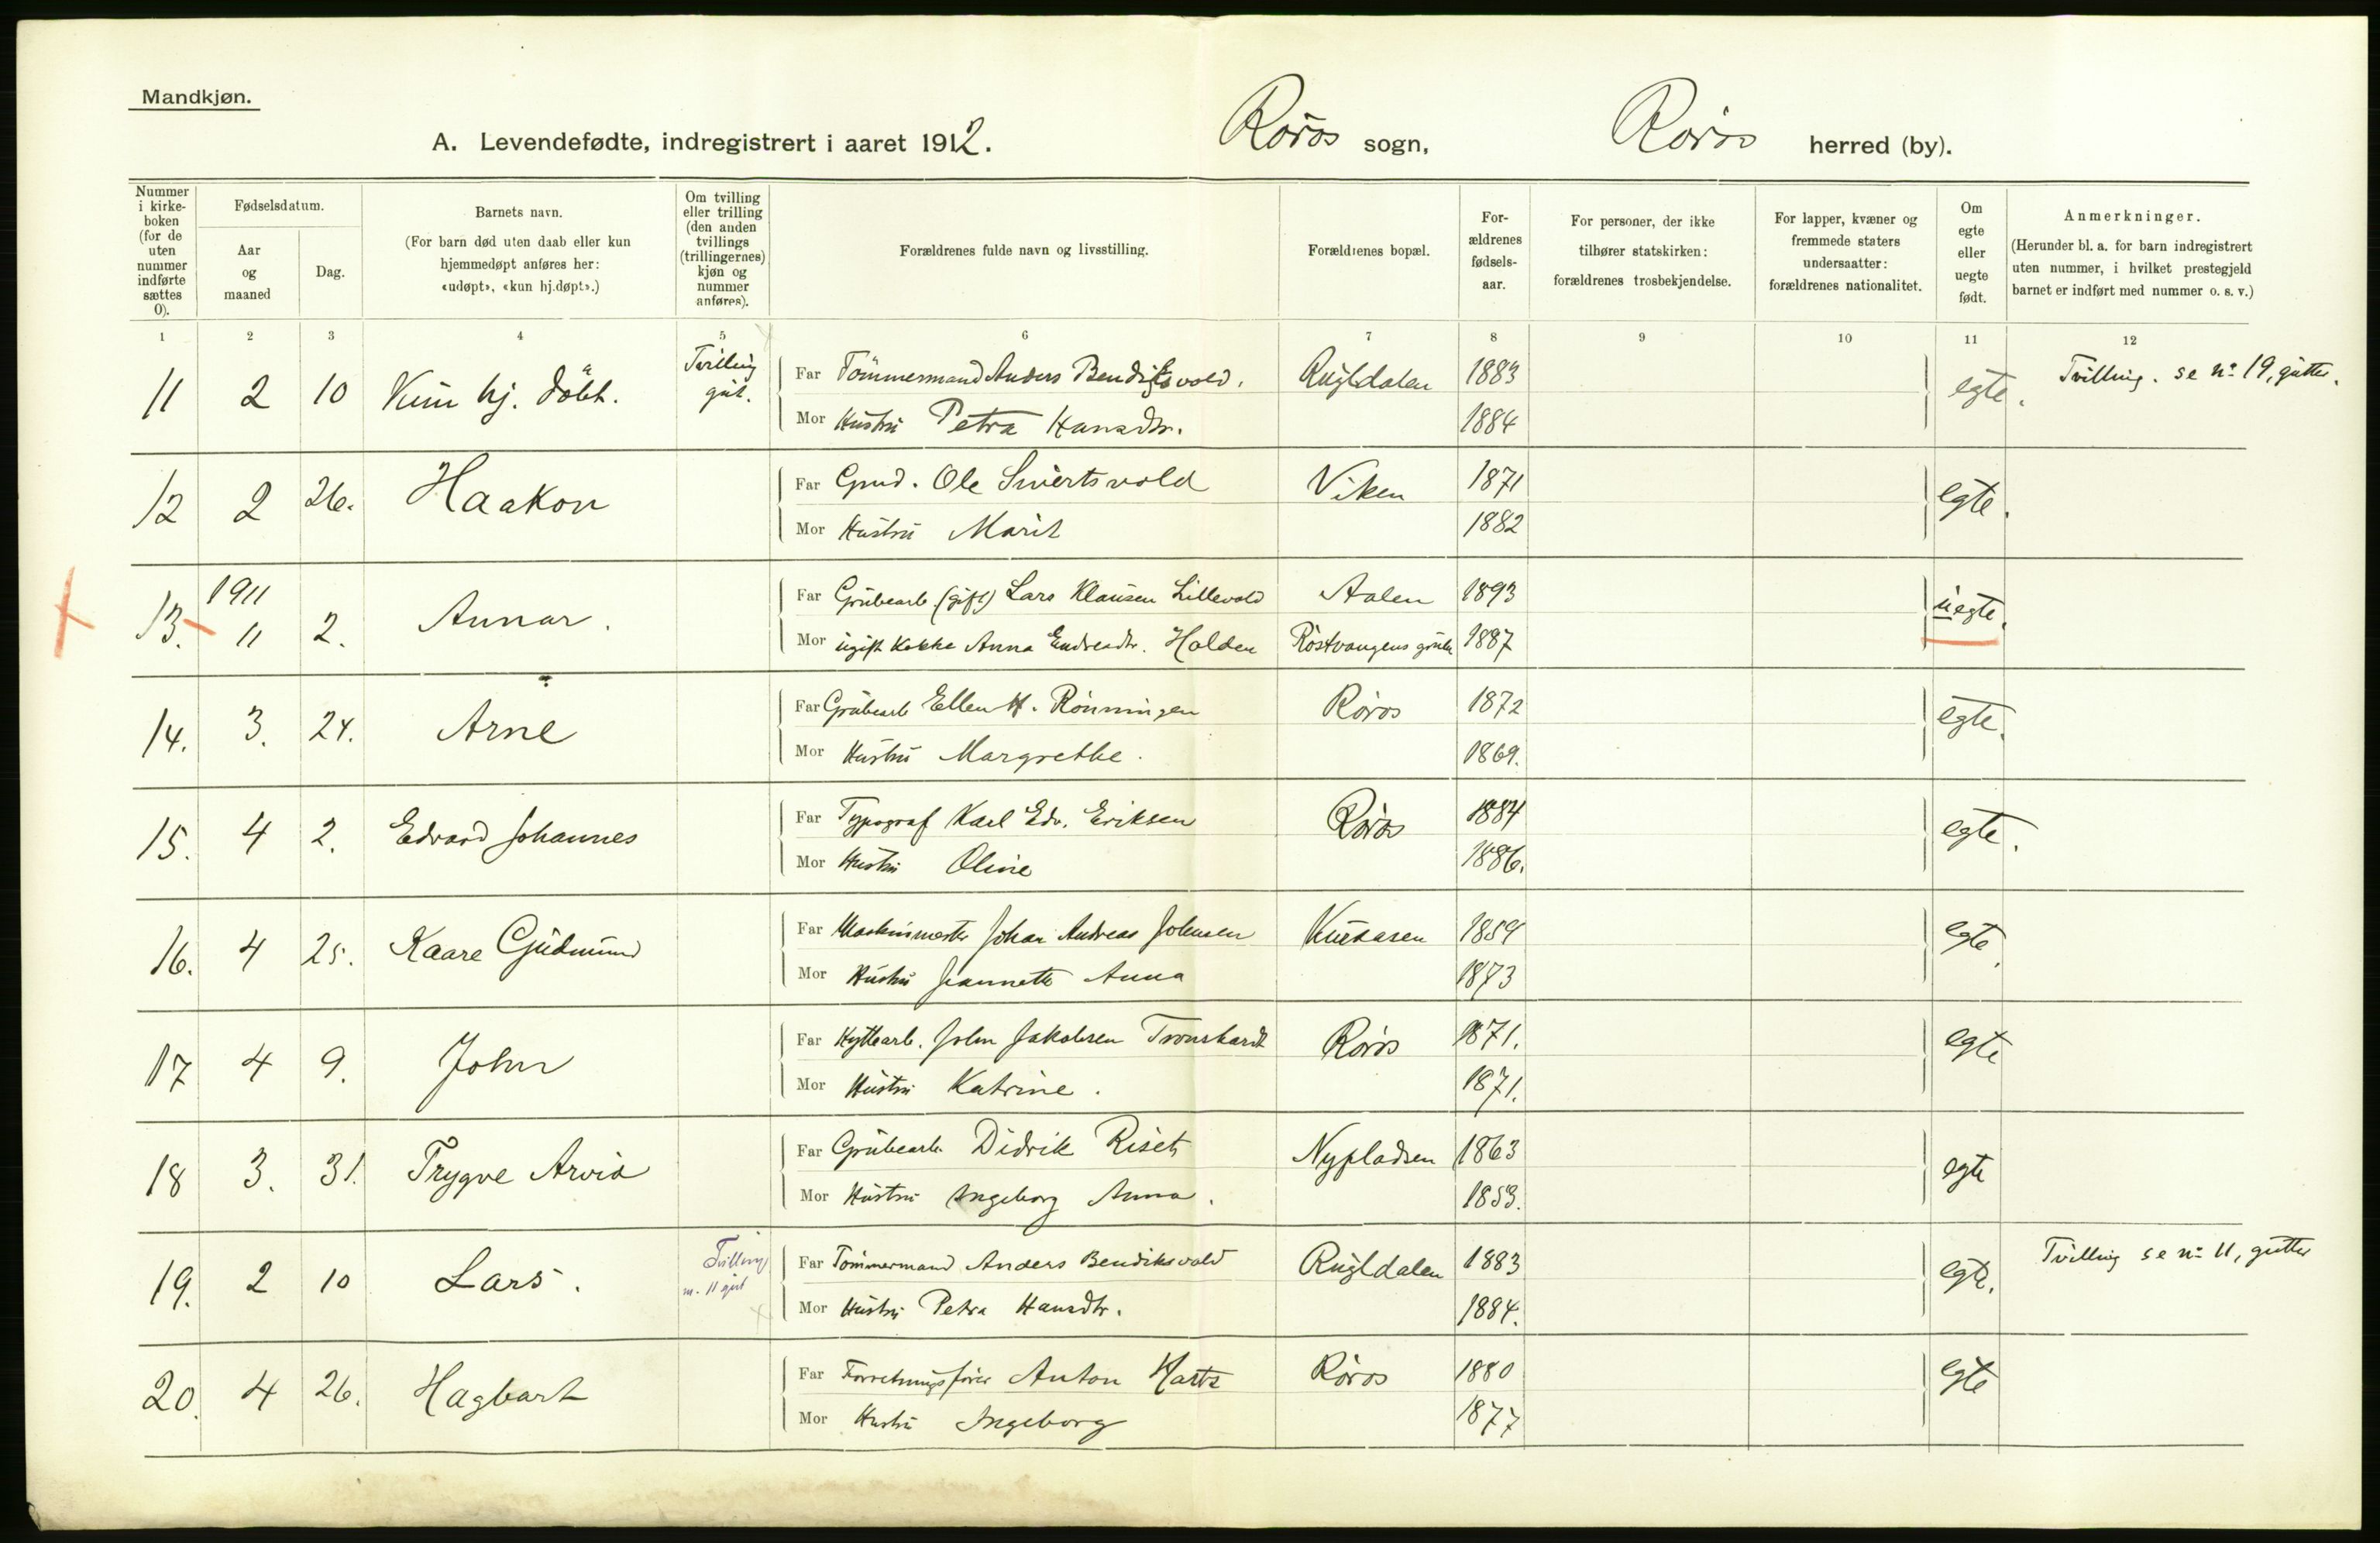 Mandkjøn.
A. Levendefødte, indregistrert i aaret 1912. Røros sogn, Røros herred (by).
Nummer i kirke-boken (for de uten nummer indførte sættes 0).
Fødselsdatum.
Aar og maaned
Dag.
Barnets navn.
(For barn død uten daab eller kun hjemmedøpt anføres her: «udøpt», «kun hj.døpt».)
Om tvilling eller trilling (den anden tvillings (trillingernes) kjøn og nummer anføres).
Forældrenes fulde navn og livsstilling.
Forældrenes bopæl.
For-ældrenes fødsels-aar.
For personer, der ikke tilhører statskirken: forældrenes trosbekjendelse.
For lapper, kvæner og fremmede staters undersaatter: forældrenes nationalitet.
Om egte eller uegte født.
Anmerkninger.
(Herunder bl. a. for barn indregistrert uten nummer, i hvilket prestegjeld barnet er indført med nummer o. s. v.)
1 2 3 4 5 6 7 8 9 10 11 12
11 2 10 Kun hj. döbt. Tvilling gut. Far Tömmermand Anders Bendiksvold. Rugldalen 1883 egte. Tvilling. se no 19, gutter.
Mor Hustru Petra Hansdtr. 1884
12 2 26. Haakon Far Grud. Ole Sivertsvold Viken 1871 egte.
Mor Hustru Marit 1882
13. 1911 11 2. Annar. Far Grubearb. (gift) Lars Klausen Lillevold Aalen 1893 uegte.
Mor ugift Kokke Anna Endresdtr. Holden Röstvangens grube 1887
14. 3. 24. Arne Far Grubearb Ellen H. Rönningen Röros 1872 egte.
Mor Hustru Margrethe. 1869.
15. 4 2. Edvard Johannes Far Typograf Karl Edv. Eriksen Röros 1884 egte.
Mor Hustru Oline 1886.
16. 4 25. Kaare Gudmund Far Maskinmester Johan Andreas Johnsen Kuraasen 1859 egte.
Mor Hustru Jeannette Anna 1873
17 4 9. John Far Hyttearb. John Jakobsen Tronshardt Röros 1871. egte
Mor Hustru Katrine. 1871.
18 3. 31. Trygve Arvid Far Grubearb. Didrik Riset Nypladsen 1863 egte
Mor Hustru Ingeborg Anna. 1853.
19. 2 10 Lars. Tvilling m. 11 gut Far Tömmermand Anders Bendiksvold Rugldalen 1883 egte. Tvilling se no 11, gutter
Mor Hustru Petra Hansdtr. 1884.
20. 4 26. Hagbart Far Forretningsförer Anton Hartz Röros 1880 egte
Mor Hustru Ingeborg 1877